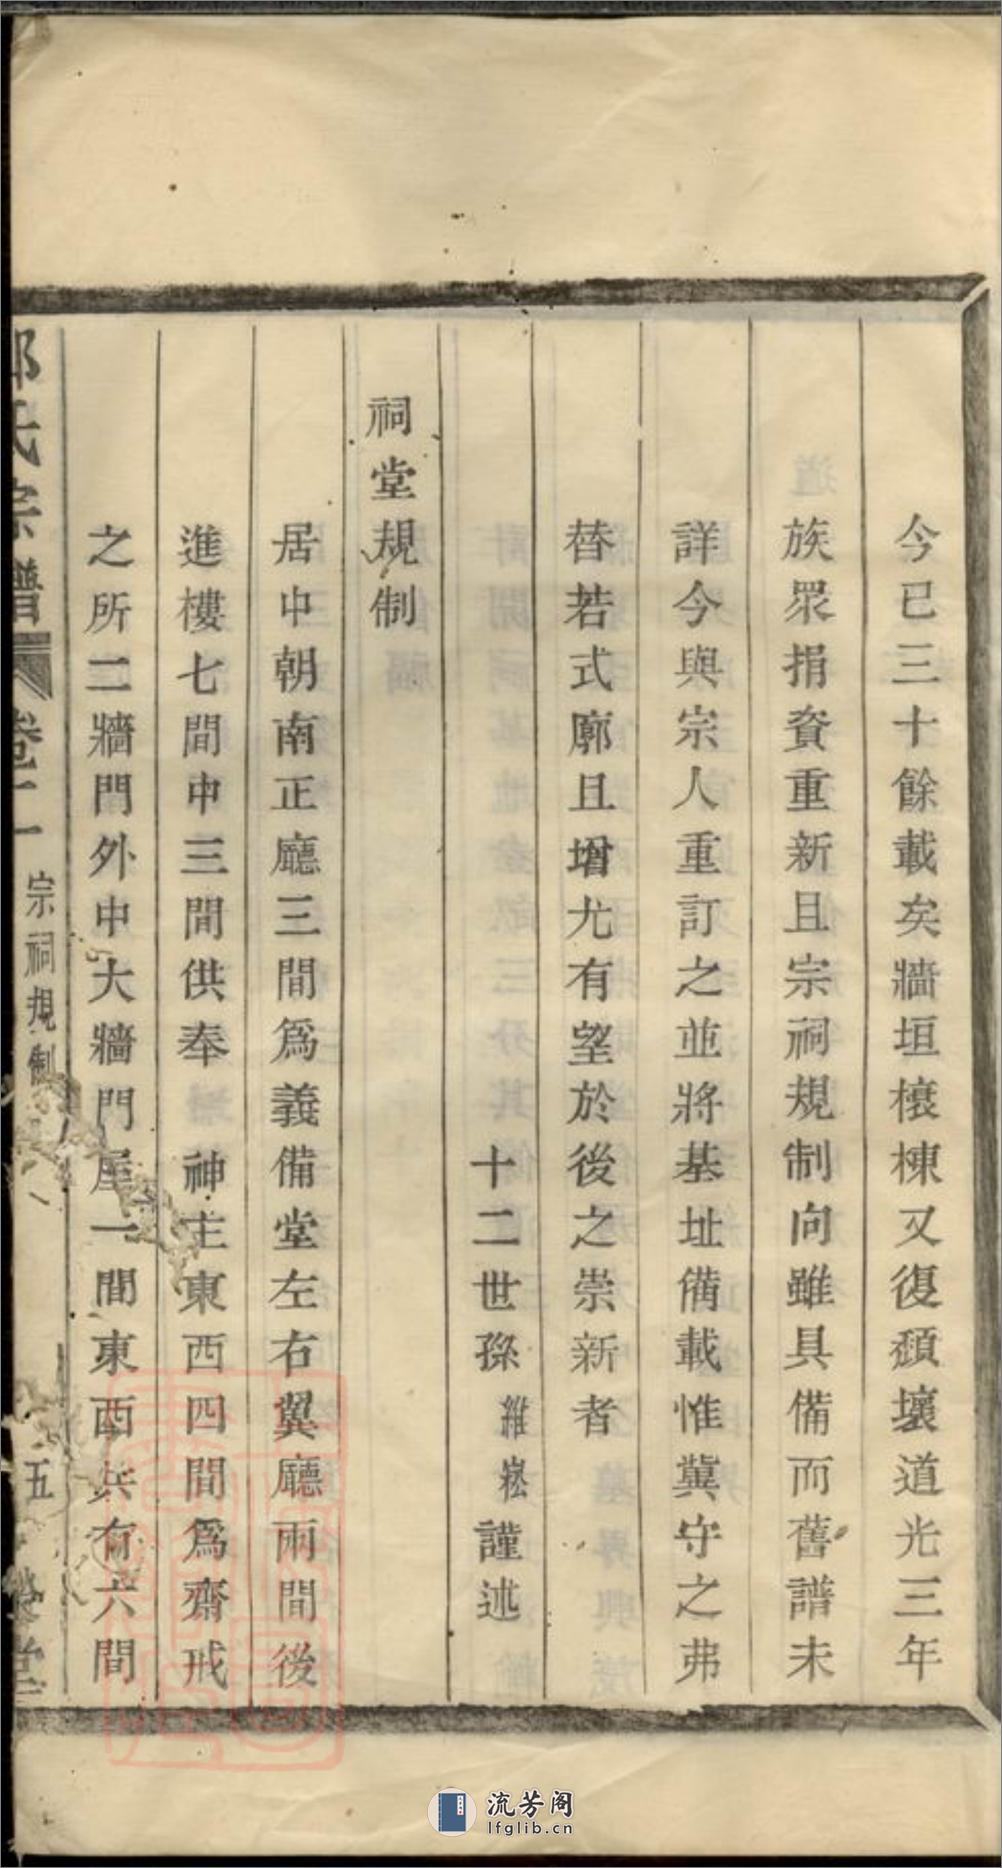 今已三十餘載矣牆垣榱棟又復頽壞道光三年
族眾捐資重新且宗祠規制向雖具備而舊譜未
詳今與宗人重訂之並將基址備載惟冀守之弗
替若式廓且增尤有望於後之崇新者
十二世孫維崧謹述
祠堂規制
居中朝南正廳三間爲義備堂左右翼廳兩間後
進樓七間中三間供奉神主東西四間爲齋戒
之所二牆門外中大牆門屋一間東西共有六間
氏宗譜 卷十一 宗祠規制 五 堂
流芳阁
lfglib.cn